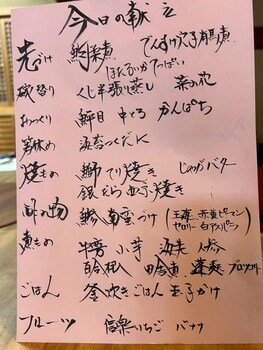 今日の献立
先づけ 鯛東煮 でんすけ穴子有馬煮
ほたるいかてっぱい 菜の花
碗替り くじ半張り蒸し
おつくり 鮮目 中とろ かんぱち
箸休め 海苔つくだに
焼もの 鰤てり焼き じゃがバター
銀だら西京焼き
酢の物 鯵南蛮づけ (玉葱 赤黄ピーマン
セロリー 白アスパラ)
煮もの 牛蒡 小芋 海老 人参
百合根 田舎煮 蓬麩 ブロッコリ
ごはん 釜炊きごはん 玉子かけ
フルーツ いちご バナナ